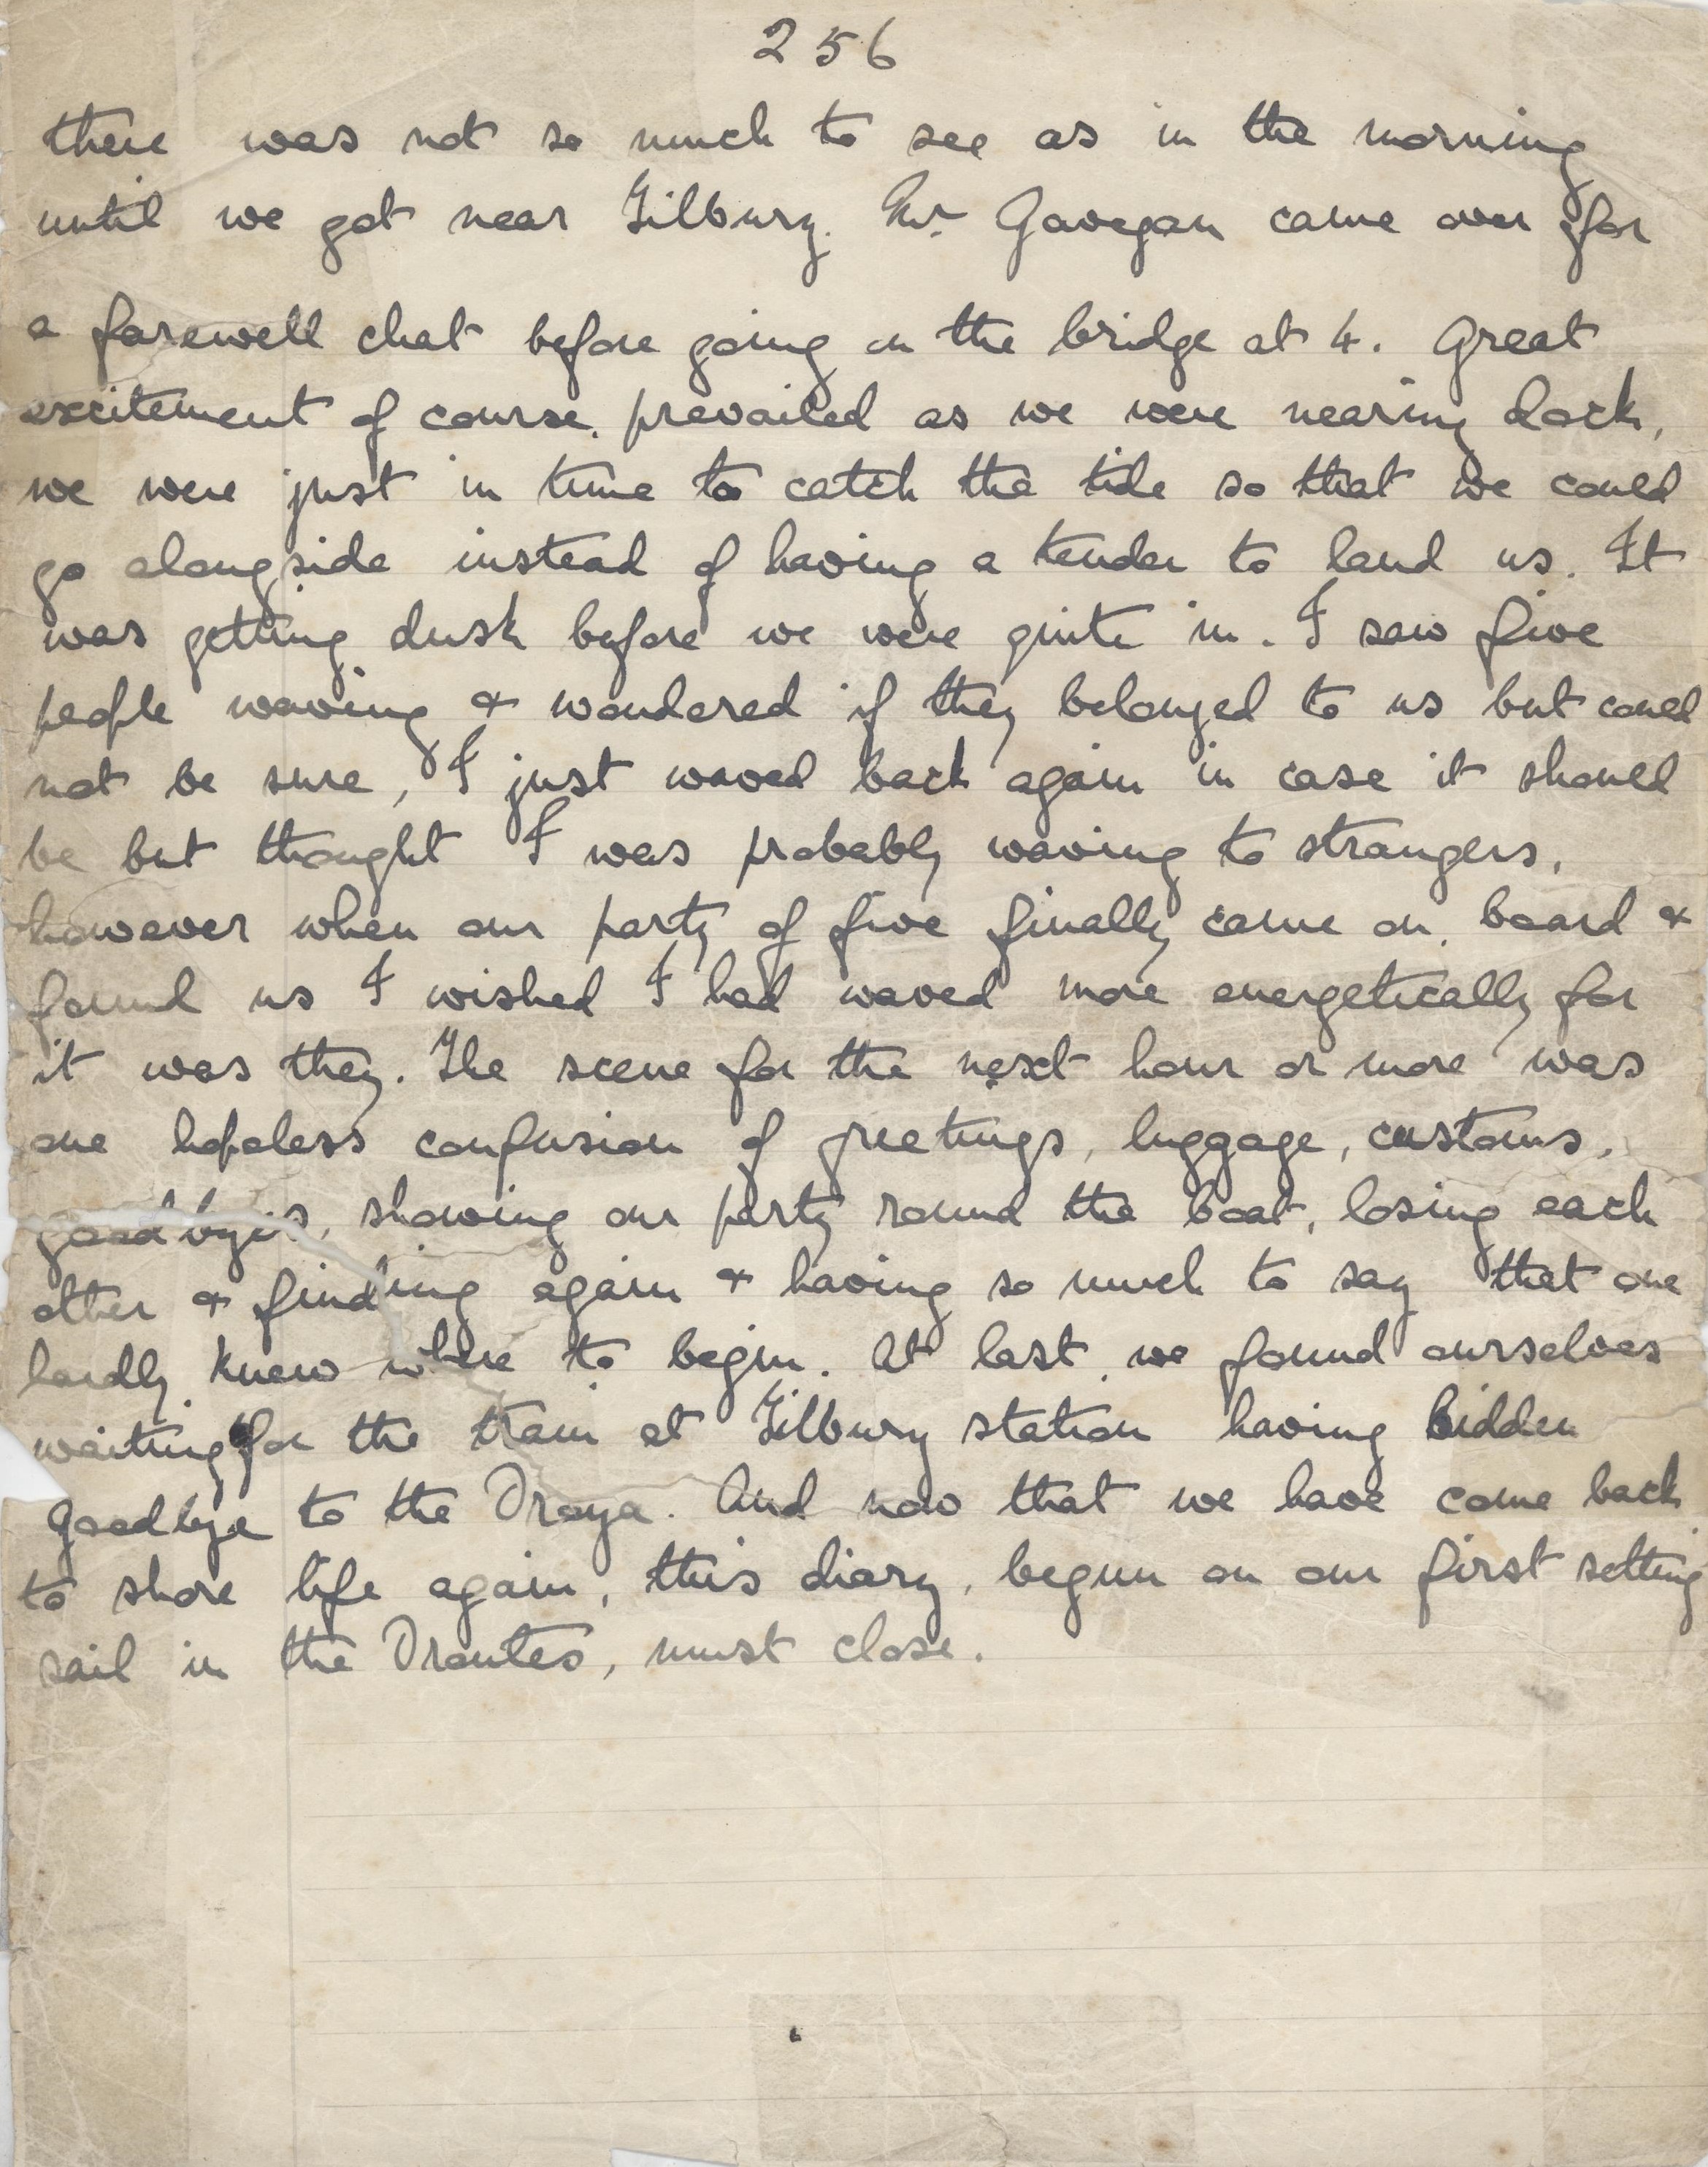 256
there was not so much to see as in the morning
until we got near Tilbury. Mr Gavegan came over for
a farewell chat before going on the bridge at 4. Great
excitement of course prevailed as we were nearing dock,
we were just in time to catch the tide so that we could
go alongside instead of having a tender to land us. It
was getting dusk before we were quite in. I saw five
people waving & wondered if they belonged to us but could
not be sure, I just waved back again in case it should
be but thought I was probably waving to strangers,
however when our party of five finally came on board &
found us I wished I had waved more energetically for
it was they. The scene for the next hour or more was
one hopeless confusion of greetings, luggage, customs,
goodbyes, showing our party round the boat, losing each
other & finding again & having so much to say that one
hardly knew where to begin. At last we found ourselves
waiting for the train at Tilbury station having bidden
goodbye to the Oroya. And now that we have come back
to shore life again, this diary, begun on our first setting
sail in the Orontes, must close.